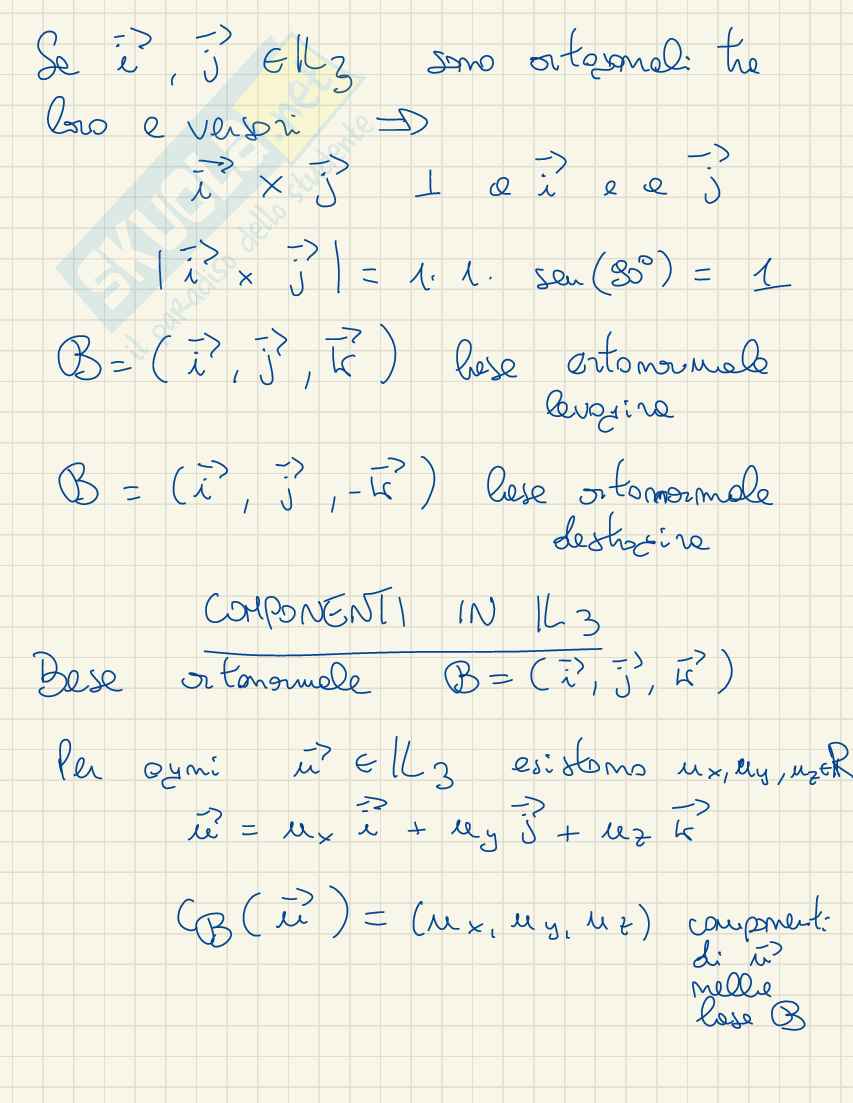 Se i⃗, j⃗ ∈ 𝕃₃ sono ortogonali tra
loro e versori ⇒
i⃗ × j⃗ ⊥ a i⃗ e a j⃗
|i⃗ × j⃗| = 1 · 1 · sen(90°) = 1
B = (i⃗, j⃗, k⃗) base ortonormale
levogira
B = (i⃗, j⃗, -k⃗) base ortonormale
destrogira
COMPONENTI IN 𝕃₃
Base ortonormale B = (i⃗, j⃗, k⃗)
Per ogni u⃗ ∈ 𝕃₃ esistono uₓ, u_y, u_z ∈ ℝ
u⃗ = uₓ i⃗ + u_y j⃗ + u_z k⃗
C_B(u⃗) = (uₓ, u_y, u_z) componenti
di u⃗
nella
base B
SKUOLA.net
il paradiso dello studente